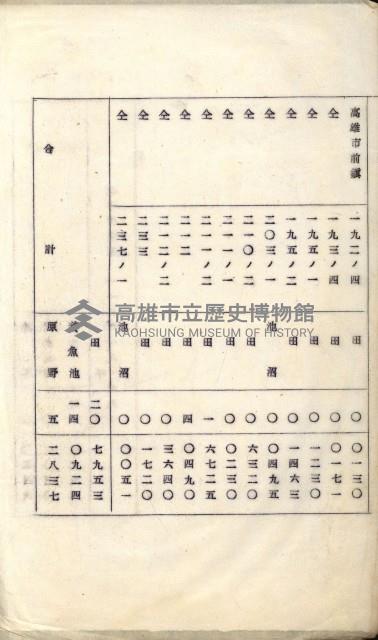 高雄市前鎮 一九二ノ四 田 〇 〇一三〇
仝 一九三ノ四 田 〇 〇一七一
仝 一九五ノ一 田 〇 一二三〇
仝 一九五ノ二 田 〇 一四六三
仝 二〇三ノ一 池沼 〇 〇四九五
仝 二一〇ノ二 田 〇 六三二〇
仝 二一一ノ一 田 〇 〇二三〇
仝 二一一ノ二 田 一 六七二五
仝 二一二 田 四 〇四九〇
仝 二一二ノ二 田 〇 三六四〇
仝 二三三 田 〇 一七二〇
仝 二三七ノ一 池沼 〇 〇〇五一
合計
田 二〇 七九五三
魚池 一四 〇九二四
原野 五 二八三七
高雄市立歷史博物館
KAOHSIUNG MUSEUM OF HISTORY